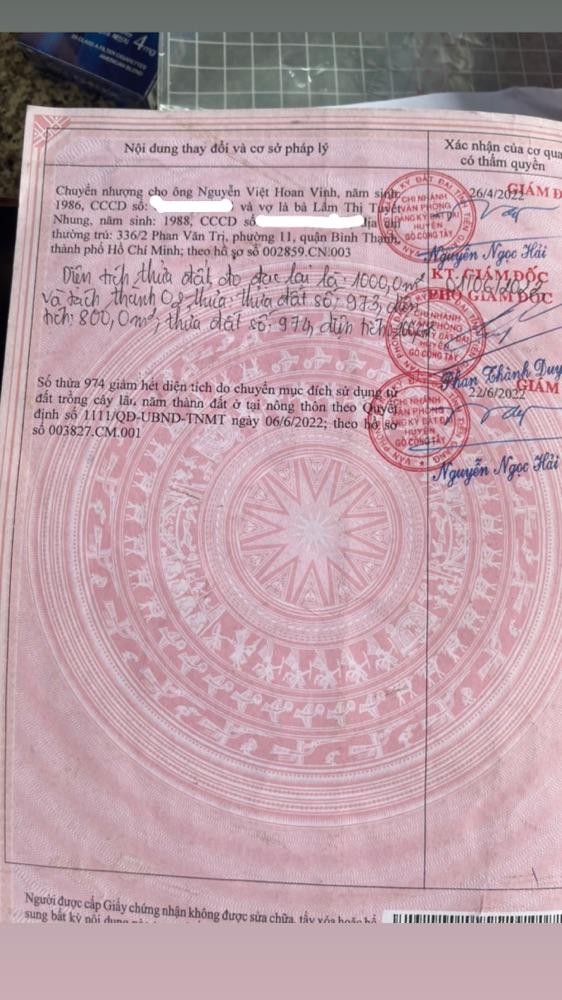 4mg
CLASS A FILTER CIGARETTES
AMERICAN BLEND
Nội dung thay đổi và cơ sở pháp lý
Xác nhận của cơ qua
có thẩm quyền
Chuyển nhượng cho ông Nguyễn Việt Hoan Vinh, năm sinh
1986, CCCD số: và vợ là bà Lâm Thị Tuyết
Nhung, năm sinh: 1988, CCCD số địa chỉ
thường trú: 336/2 Phan Văn Trị, phường 11, quận Bình Thạnh,
thành phố Hồ Chí Minh; theo hồ sơ số 002859.CN.003
26/4/2022
GIÁM Đ
CHI NHÁNH
VĂN PHÒNG
ĐĂNG KÝ ĐẤT ĐAI
HUYỆN
GÒ CÔNG TÂY
Nguyễn Ngọc Hải
Diện tích thửa đất đo đạc lại là 1000,0m²
và tách thành 02 thửa: thửa đất số: 973, diện
tích: 800,0m²; thửa đất số: 974, diện tích:
KT. GIÁM ĐỐC
PHÓ GIÁM ĐỐC
CHI NHÁNH
VĂN PHÒNG
ĐĂNG KÝ ĐẤT ĐAI
HUYỆN
GÒ CÔNG TÂY
Phan Thành Duy
Số thửa 974 giảm hết diện tích do chuyển mục đích sử dụng từ
đất trồng cây lâu năm thành đất ở tại nông thôn theo Quyết
định số 1111/QĐ-UBND-TNMT ngày 06/6/2022; theo hồ sơ
số 003827.CM.001
22/6/2022
GIÁM
CHI NHÁNH
VĂN PHÒNG
ĐĂNG KÝ ĐẤT ĐAI
HUYỆN
GÒ CÔNG TÂY
Nguyễn Ngọc Hải
Người được cấp Giấy chứng nhận không được sửa chữa, tẩy xóa hoặc bổ
sung bất kỳ nội dung